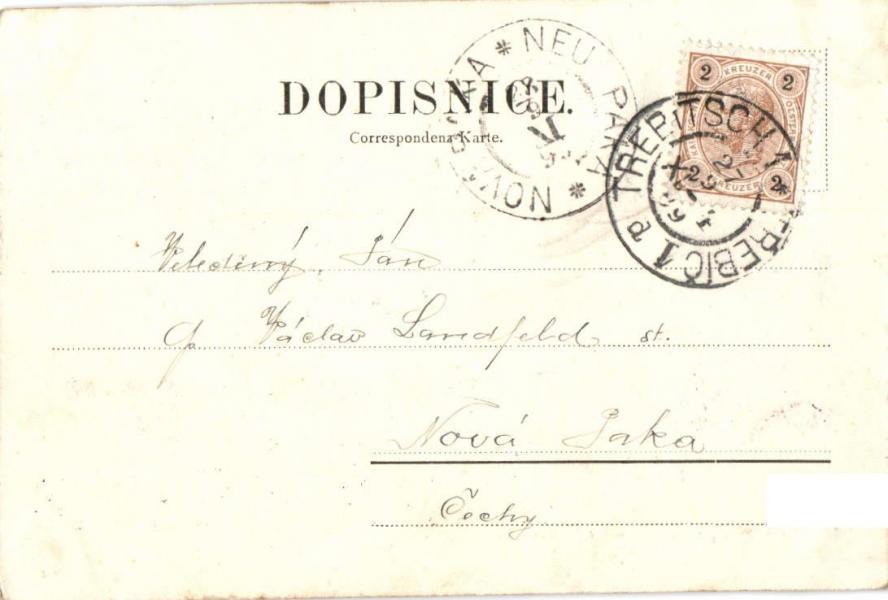 DOPISNICE.
Correspondenz-Karte.
* NEU PAKA * NOVÁ PAKA
2 KREUZER 2
2 KREUZER 2
TREBITSCH 1 * TŘEBÍČ 1
Veleděný Pán
Václav Landfeld st.
Nová Paka
Čechy